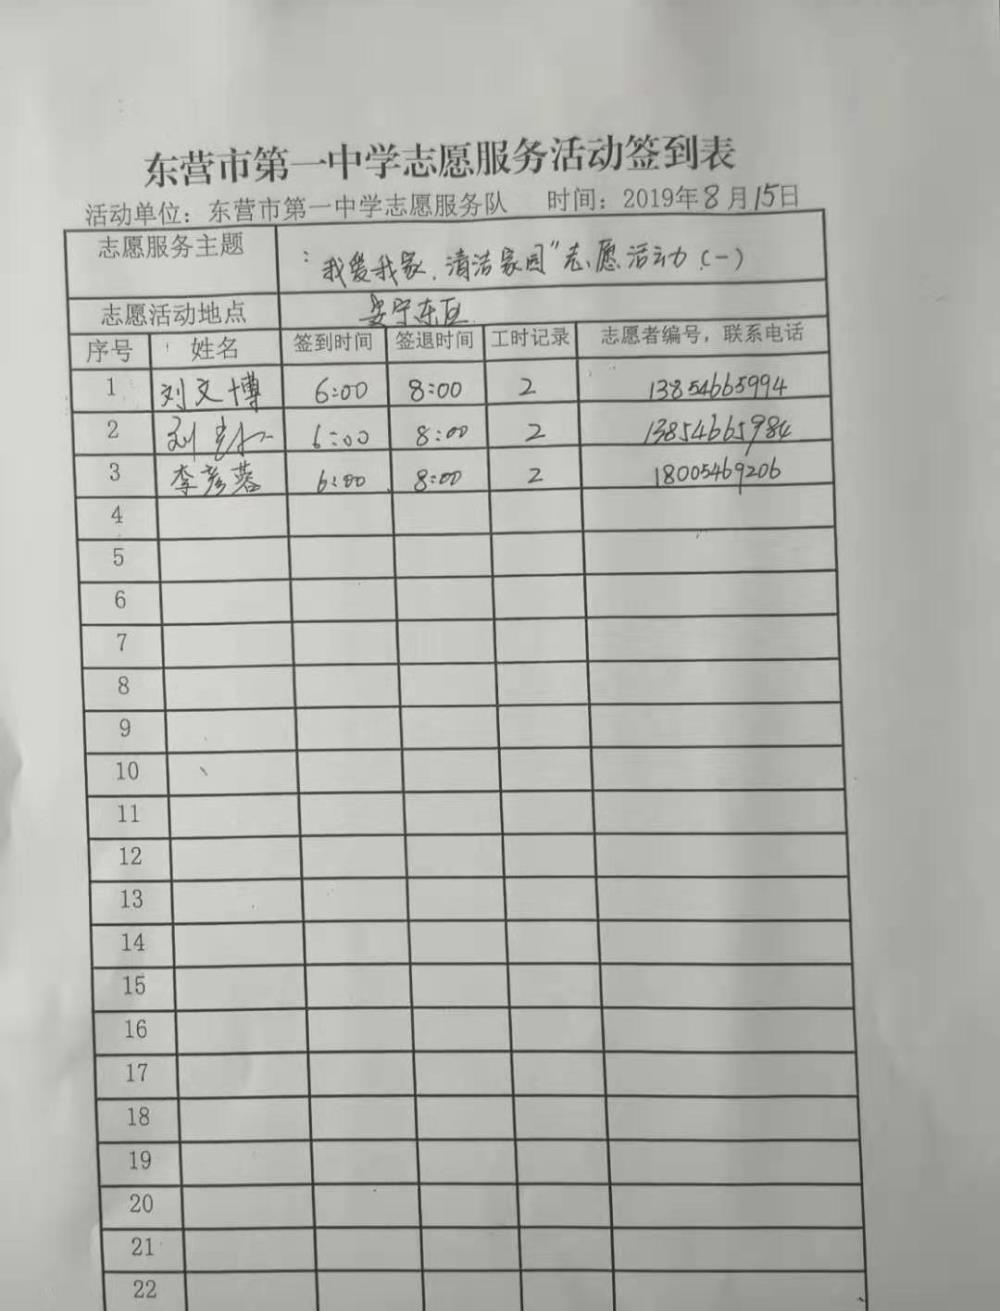 东营市第一中学志愿服务活动签到表
活动单位：东营市第一中学志愿服务队 时间：2019年8月15日
志愿服务主题 “我爱我家，清洁家园”志愿活动（一）
志愿活动地点 安宁东区
序号 姓名 签到时间 签退时间 工时记录 志愿者编号，联系电话
1 刘文博 6:00 8:00 2 13854665994
2 刘 6:00 8:00 2 13854665984
3 李彦蓉 6:00 8:00 2 18005469206
4
5
6
7
8
9
10
11
12
13
14
15
16
17
18
19
20
21
22